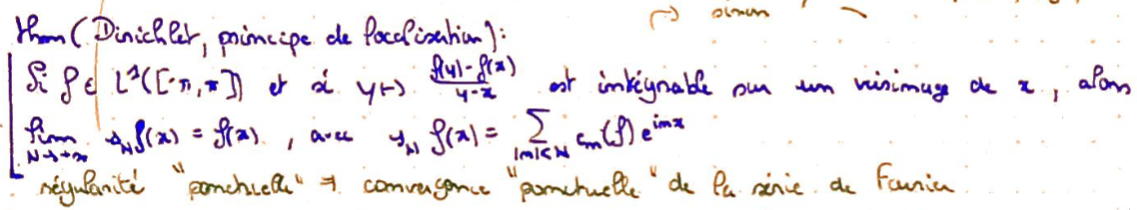 simon
thm (Dirichlet, principe de localisation):
Si f ∈ L¹([-π,π]) et si y ↦ (f(y)-f(x))/(y-x) est intégrable sur un voisinage de x, alors
lim_{N→+∞} s_N f(x) = f(x), avec s_N f(x) = ∑_{|n|≤N} c_n(f) e^{inx}
régularité "ponctuelle" ⇒ convergence "ponctuelle" de la série de Fourier